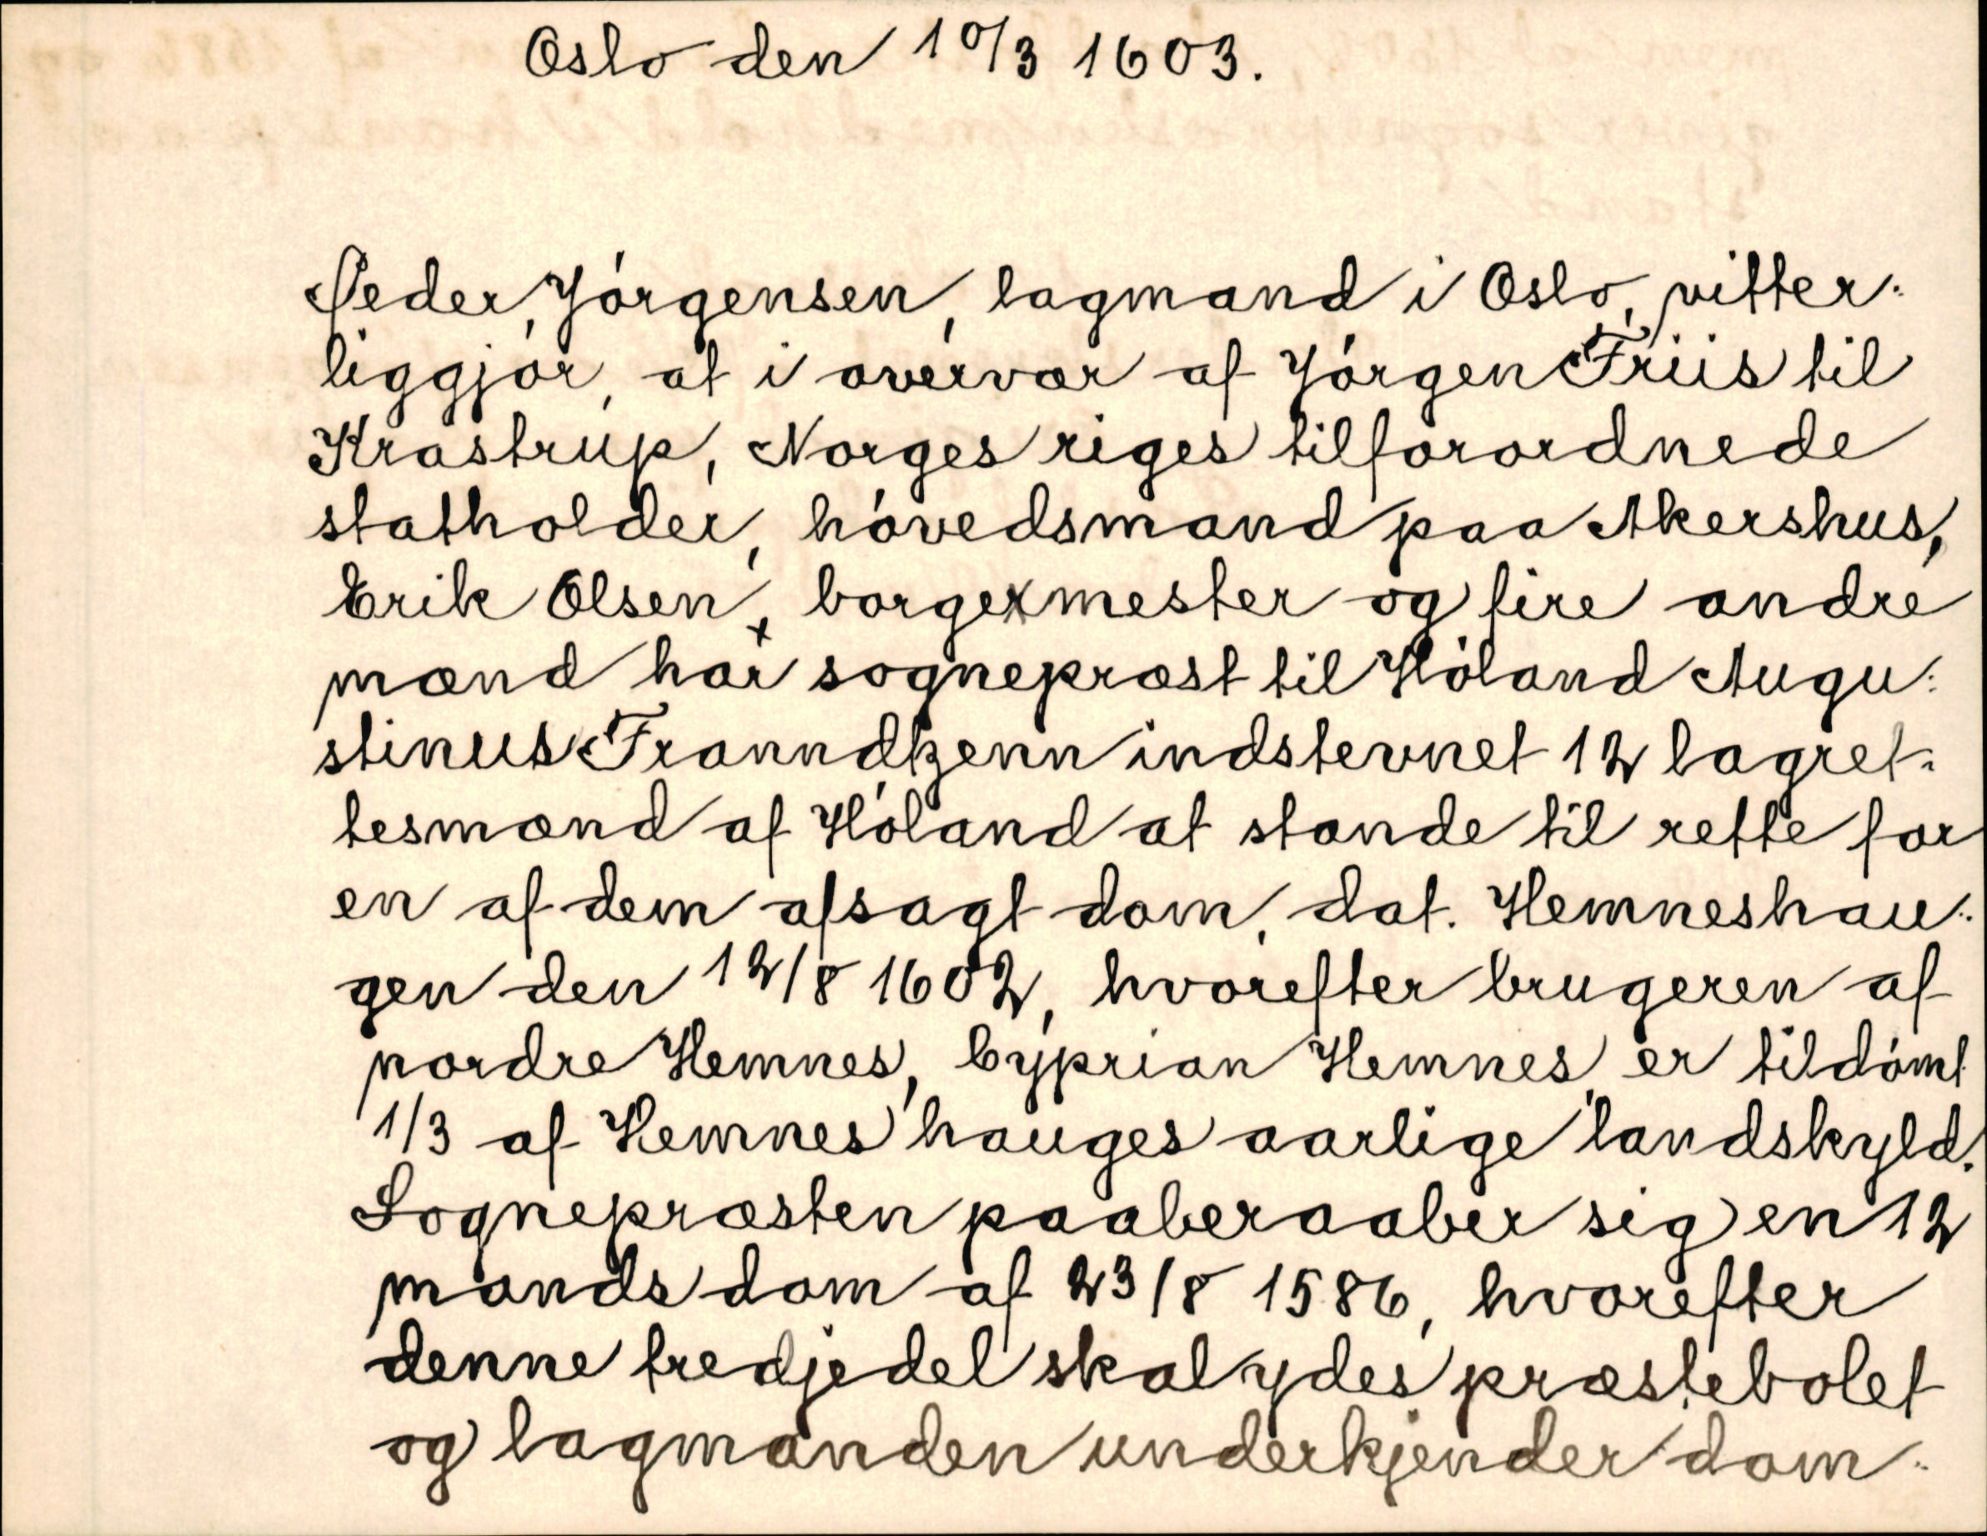 Oslo den 10/3 1603.
Peder Jórgensen, lagmand i Oslo, vitter-
liggjór, at i overvær af Jórgen Friis til
Krastrup, Norges riges tilforordnede
statholder, hóvedsmand paa Akershus,
Erik Olsen, borgermester og fire andre
mænd har sogneprest til Hóland Augu-
stinus Franndtzenn indstevnet 12 lagret-
tesmænd af Hóland at stande til rette for
en af dem afsagt dom, dat. Hemneshau-
gen den 12/8 1602, hvorefter brugeren af
nordre Hemnes, Cyprian Hemnes, er tildómt
1/3 af Hemnes hauges aarlige landskyld.
Sognepræsten paaberaaber sig en 12
mands dom af 23/8 1586, hvorefter
denne tredjedel skal ydes præstebolet
og lagmanden underkjender dom-